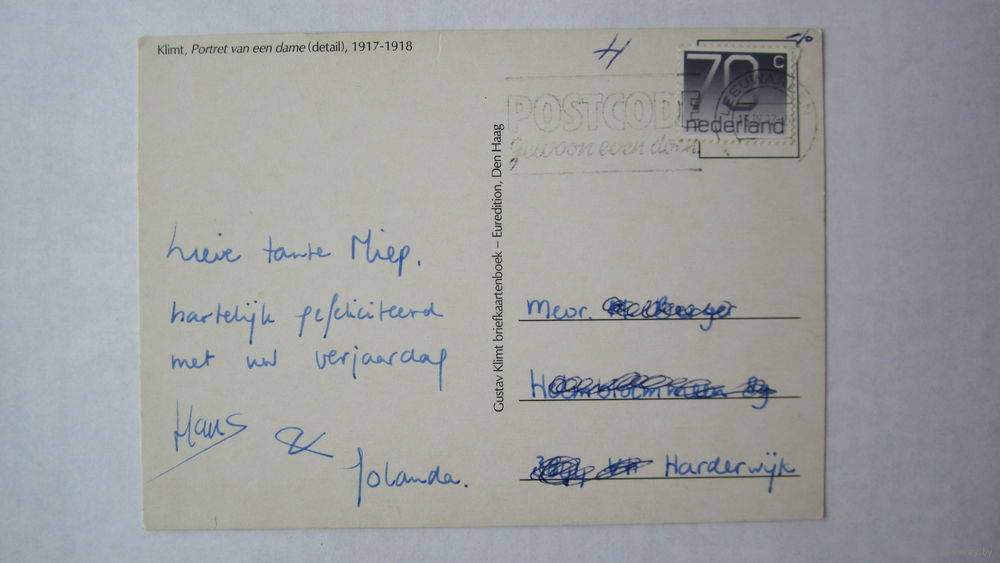 Klimt, Portret van een dame (detail), 1917-1918
70 c
nederland
LEEUWARDEN
POSTCODE
gewoon even doen
Gustav Klimt briefkaartenboek – Euredition, Den Haag
Lieve tante Miep.
hartelijk gefeliciteerd
met uw verjaardag
Hans
&
Jolanda.
Mevr.
Harderwijk